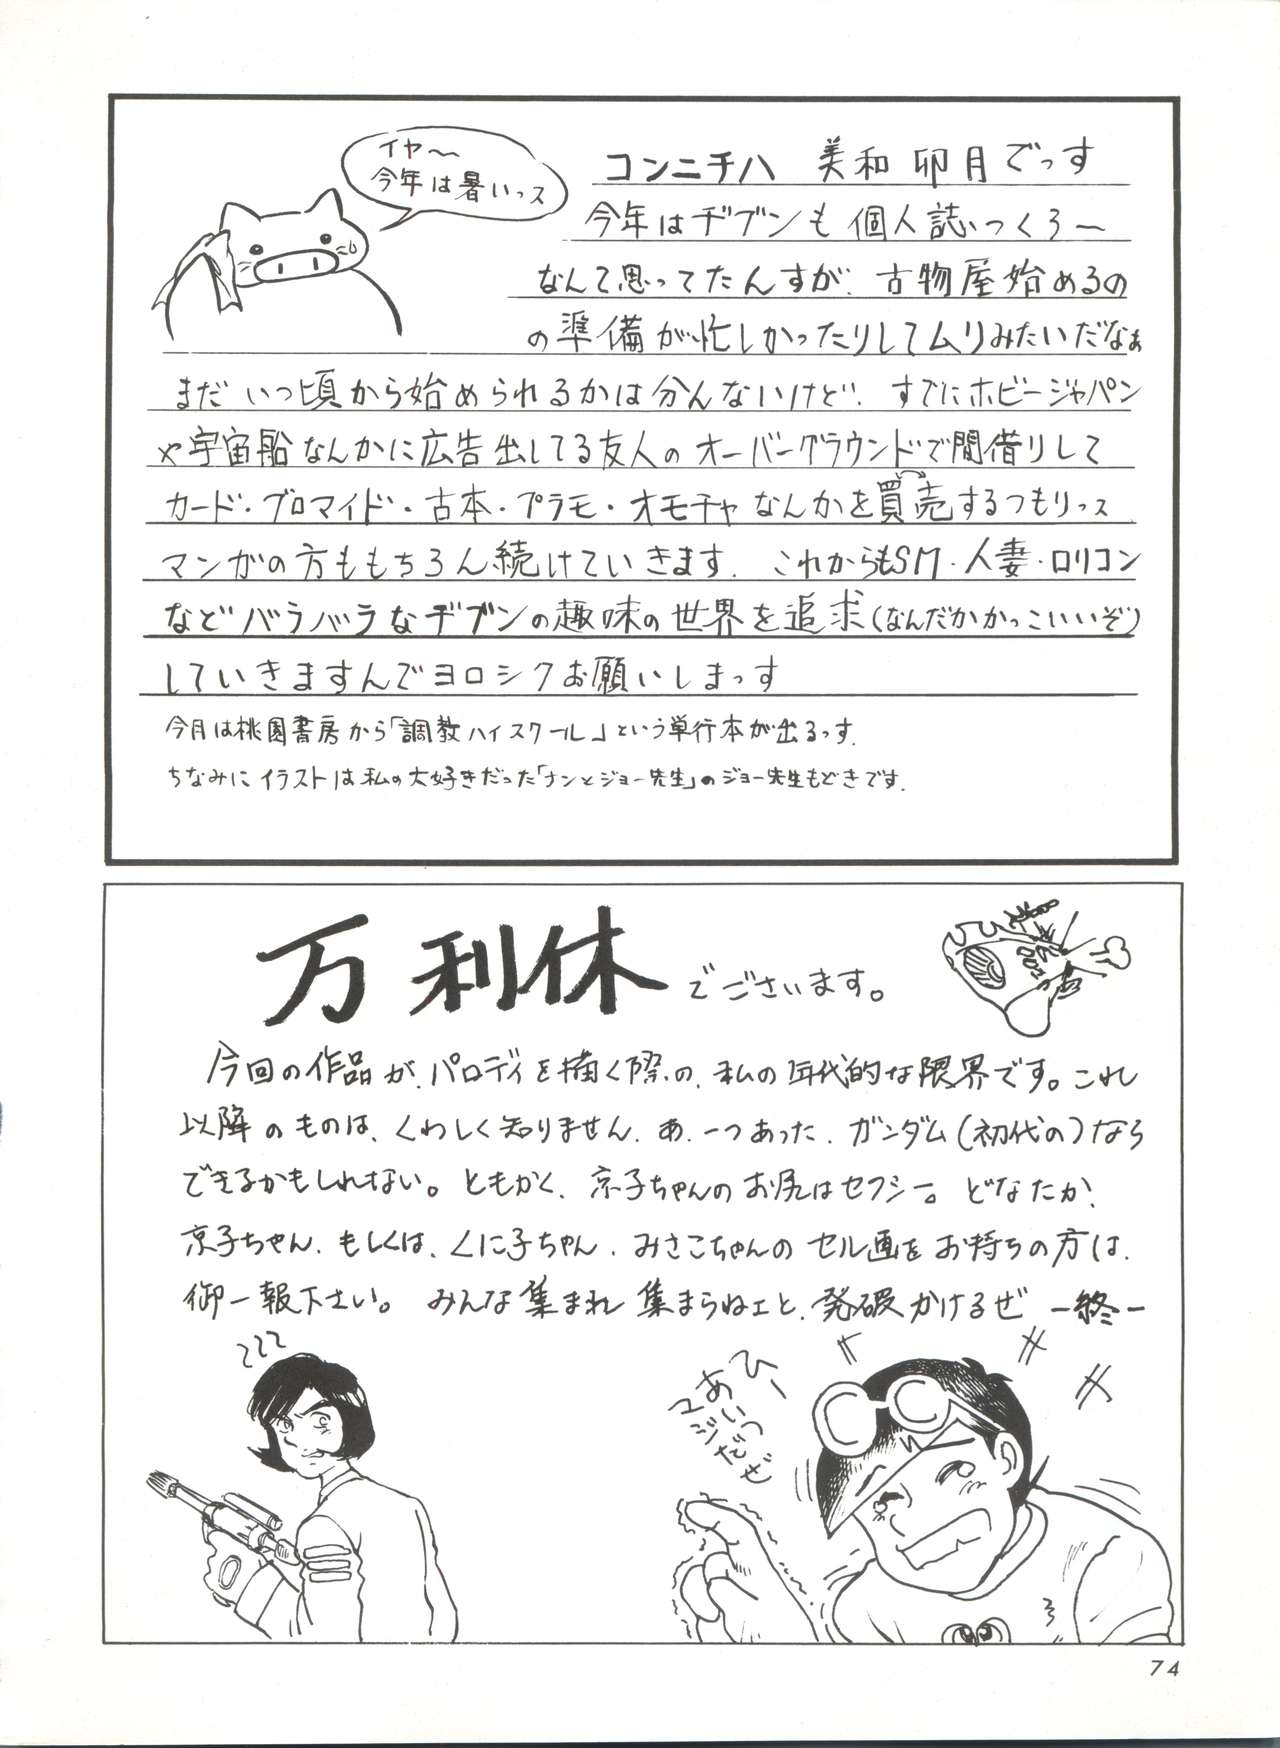 イヤ〜
今年は暑いっス
コンニチハ 美和卯月でっす
今年はヂブンも個人誌つくろ〜
なんて思ってたんすが、古物屋始めるの
の準備が忙しかったりしてムリみたいだなぁ
まだいつ頃から始められるかは分んないけど、すでにホビージャパン
や宇宙船なんかに広告出してる友人のオーバーグラウンドで間借りして
カード・ブロマイド・古本・プラモ・オモチャなんかを買売するつもりっス
マンガの方ももちろん続けていきます。これからもSM・人妻・ロリコン
などバラバラなヂブンの趣味の世界を追求(なんだかかっこいいぞ)
していきますんでヨロシクお願いしまっす
今月は桃園書房から「調教ハイスクール」という単行本が出るっす。
ちなみにイラストは私の大好きだった「ナンとジョー先生」のジョー先生もどきです。
万利休でございます。
今回の作品が、パロディを描く際の、私の年代的な限界です。これ
以降のものは、くわしく知りません。あ、一つあった、ガンダム(初代の)なら
できるかもしれない。ともかく、京子ちゃんのお尻はセクシー。どなたか、
京子ちゃん、もしくは、くに子ちゃん、みさこちゃんのセル画をお持ちの方は、
御一報下さい。みんな集まれ 集まらねェと、発破かけるぜ ー終ー
ひー
あいつ
マジだぜ
74